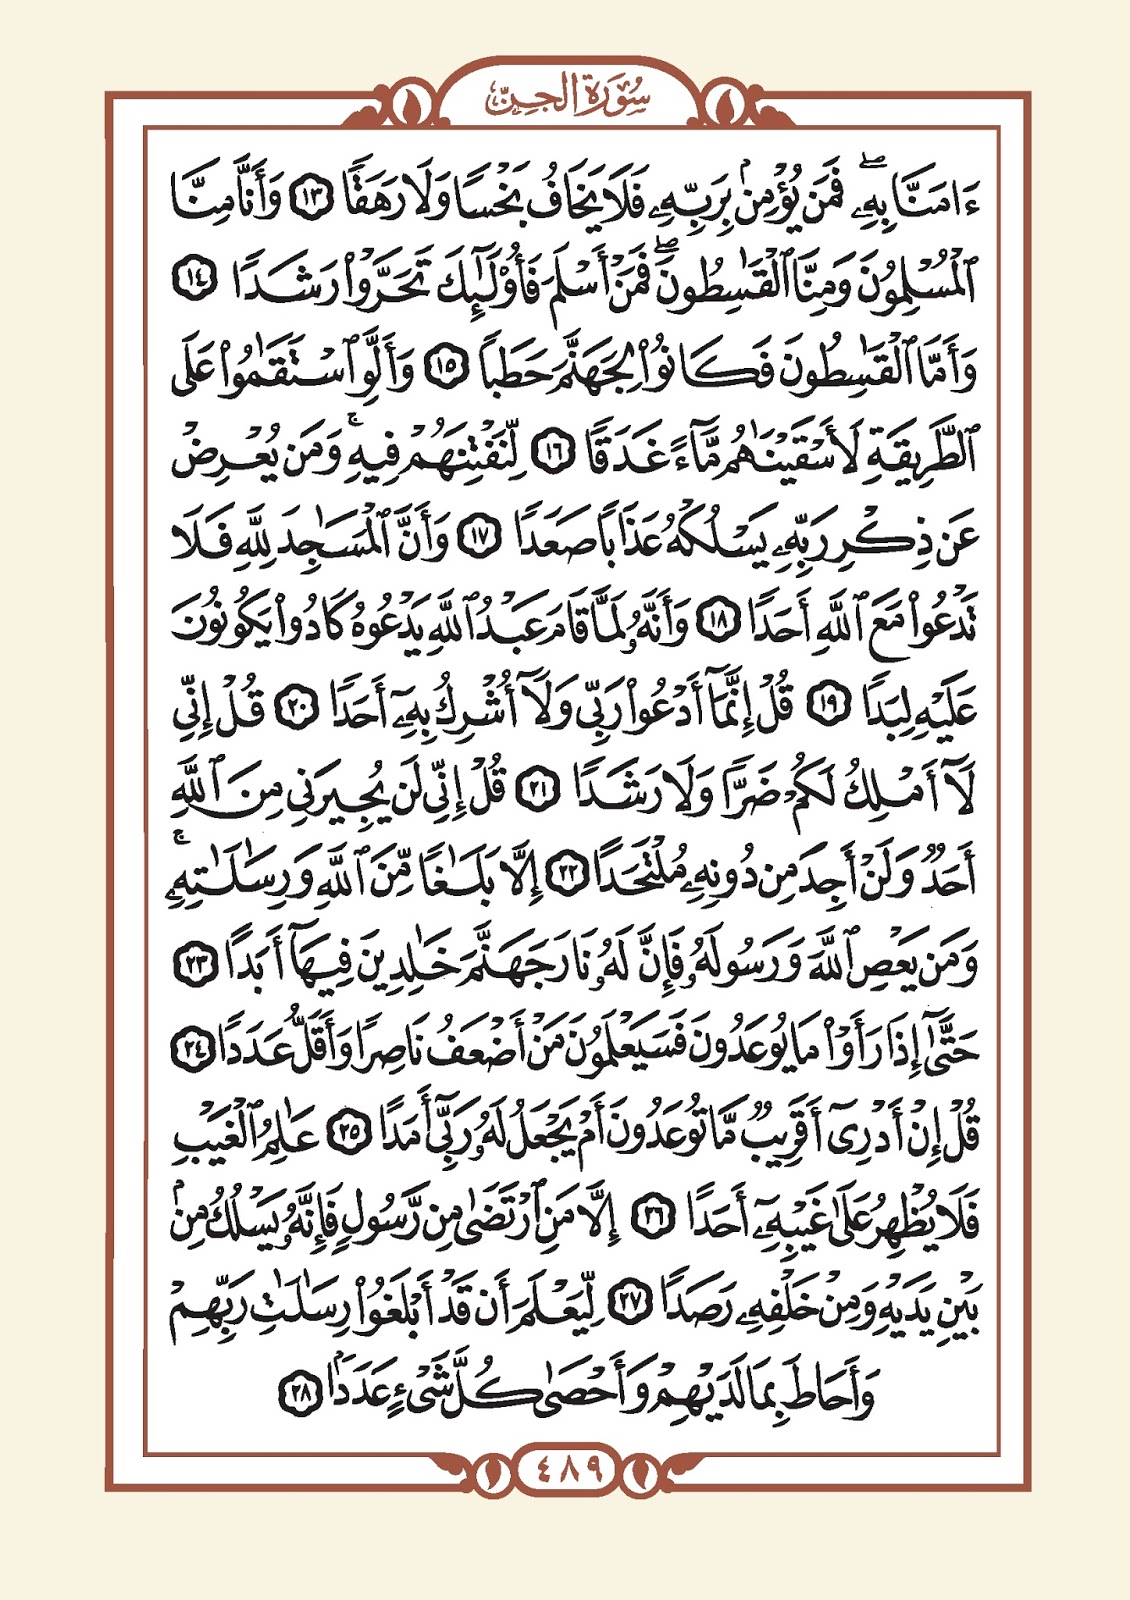 سُورَةُ الجِنّ
ءَامَنَّا بِهِۦۖ فَمَن يُؤْمِنۢ بِرَبِّهِۦ فَلَا يَخَافُ بَخْسًا وَلَا رَهَقًا ١٣ وَأَنَّا مِنَّا
ٱلْمُسْلِمُونَ وَمِنَّا ٱلْقَٰسِطُونَۖ فَمَنْ أَسْلَمَ فَأُوْلَٰٓئِكَ تَحَرَّوْاْ رَشَدًا ١٤
وَأَمَّا ٱلْقَٰسِطُونَ فَكَانُواْ لِجَهَنَّمَ حَطَبًا ١٥ وَأَلَّوِ ٱسْتَقَٰمُواْ عَلَى
ٱلطَّرِيقَةِ لَأَسْقَيْنَٰهُم مَّآءً غَدَقًا ١٦ لِّنَفْتِنَهُمْ فِيهِۚ وَمَن يُعْرِضْ
عَن ذِكْرِ رَبِّهِۦ يَسْلُكْهُ عَذَابًا صَعَدًا ١٧ وَأَنَّ ٱلْمَسَٰجِدَ لِلَّهِ فَلَا
تَدْعُواْ مَعَ ٱللَّهِ أَحَدًا ١٨ وَأَنَّهُۥ لَمَّا قَامَ عَبْدُ ٱللَّهِ يَدْعُوهُ كَادُواْ يَكُونُونَ
عَلَيْهِ لِبَدًا ١٩ قُلْ إِنَّمَآ أَدْعُواْ رَبِّى وَلَآ أُشْرِكُ بِهِۦٓ أَحَدًا ٢٠ قُلْ إِنِّى
لَآ أَمْلِكُ لَكُمْ ضَرًّا وَلَا رَشَدًا ٢١ قُلْ إِنِّى لَن يُجِيرَنِى مِنَ ٱللَّهِ
أَحَدٌ وَلَنْ أَجِدَ مِن دُونِهِۦ مُلْتَحَدًا ٢٢ إِلَّا بَلَٰغًا مِّنَ ٱللَّهِ وَرِسَٰلَٰتِهِۦۚ
وَمَن يَعْصِ ٱللَّهَ وَرَسُولَهُۥ فَإِنَّ لَهُۥ نَارَ جَهَنَّمَ خَٰلِدِينَ فِيهَآ أَبَدًا ٢٣
حَتَّىٰٓ إِذَا رَأَوْاْ مَا يُوعَدُونَ فَسَيَعْلَمُونَ مَنْ أَضْعَفُ نَاصِرًا وَأَقَلُّ عَدَدًا ٢٤
قُلْ إِنْ أَدْرِىٓ أَقَرِيبٌ مَّا تُوعَدُونَ أَمْ يَجْعَلُ لَهُۥ رَبِّىٓ أَمَدًا ٢٥ عَٰلِمُ ٱلْغَيْبِ
فَلَا يُظْهِرُ عَلَىٰ غَيْبِهِۦٓ أَحَدًا ٢٦ إِلَّا مَنِ ٱرْتَضَىٰ مِن رَّسُولٍ فَإِنَّهُۥ يَسْلُكُ مِنۢ
بَيْنِ يَدَيْهِ وَمِنْ خَلْفِهِۦ رَصَدًا ٢٧ لِّيَعْلَمَ أَن قَدْ أَبْلَغُواْ رِسَٰلَٰتِ رَبِّهِمْ
وَأَحَاطَ بِمَا لَدَيْهِمْ وَأَحْصَىٰ كُلَّ شَىْءٍ عَدَدَۢا ٢٨
٤٨٩